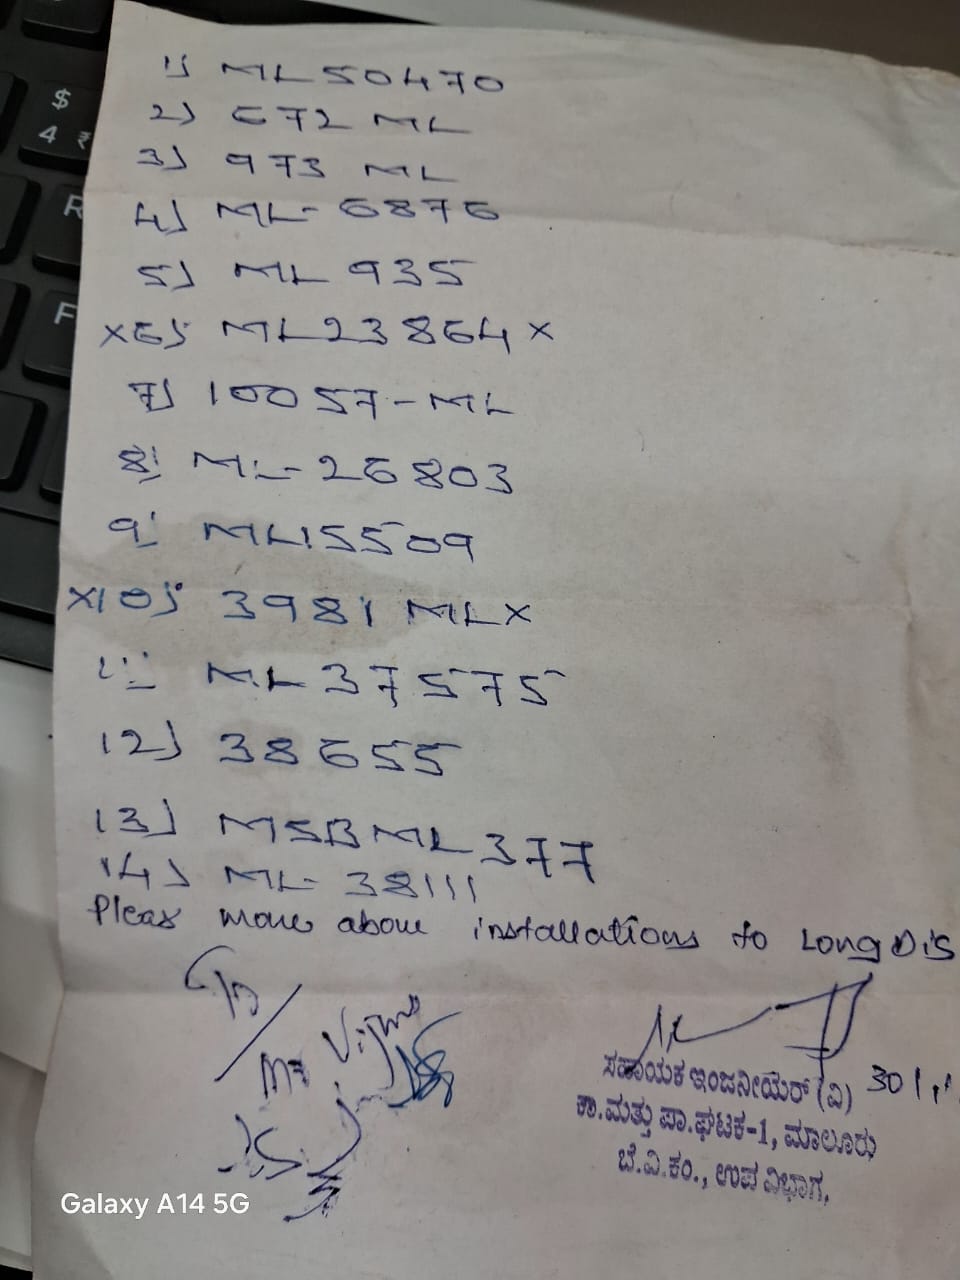 $
4 ₹
R
F
1) ML 50470
2) 672 ML
3) 973 ML
4) ML- 6876
5) ML 935
x6) ML23864 x
7) 10057-ML
8) ML-26803
9) ML15509
x10) 3981 MLX
11) ML 37575
12) 38655
13) MSBML 377
14) ML- 38111
Pleas move above installations to Long Dis
ಸಹಾಯಕ ಇಂಜನೀಯರ್ (ವಿ) 30/
ಕಾ.ಮತ್ತು ಪಾ.ಘಟಕ-1, ಮಾಲೂರು
ಬೆ.ವಿ.ಕಂ., ಉಪ ವಿಭಾಗ.
Galaxy A14 5G